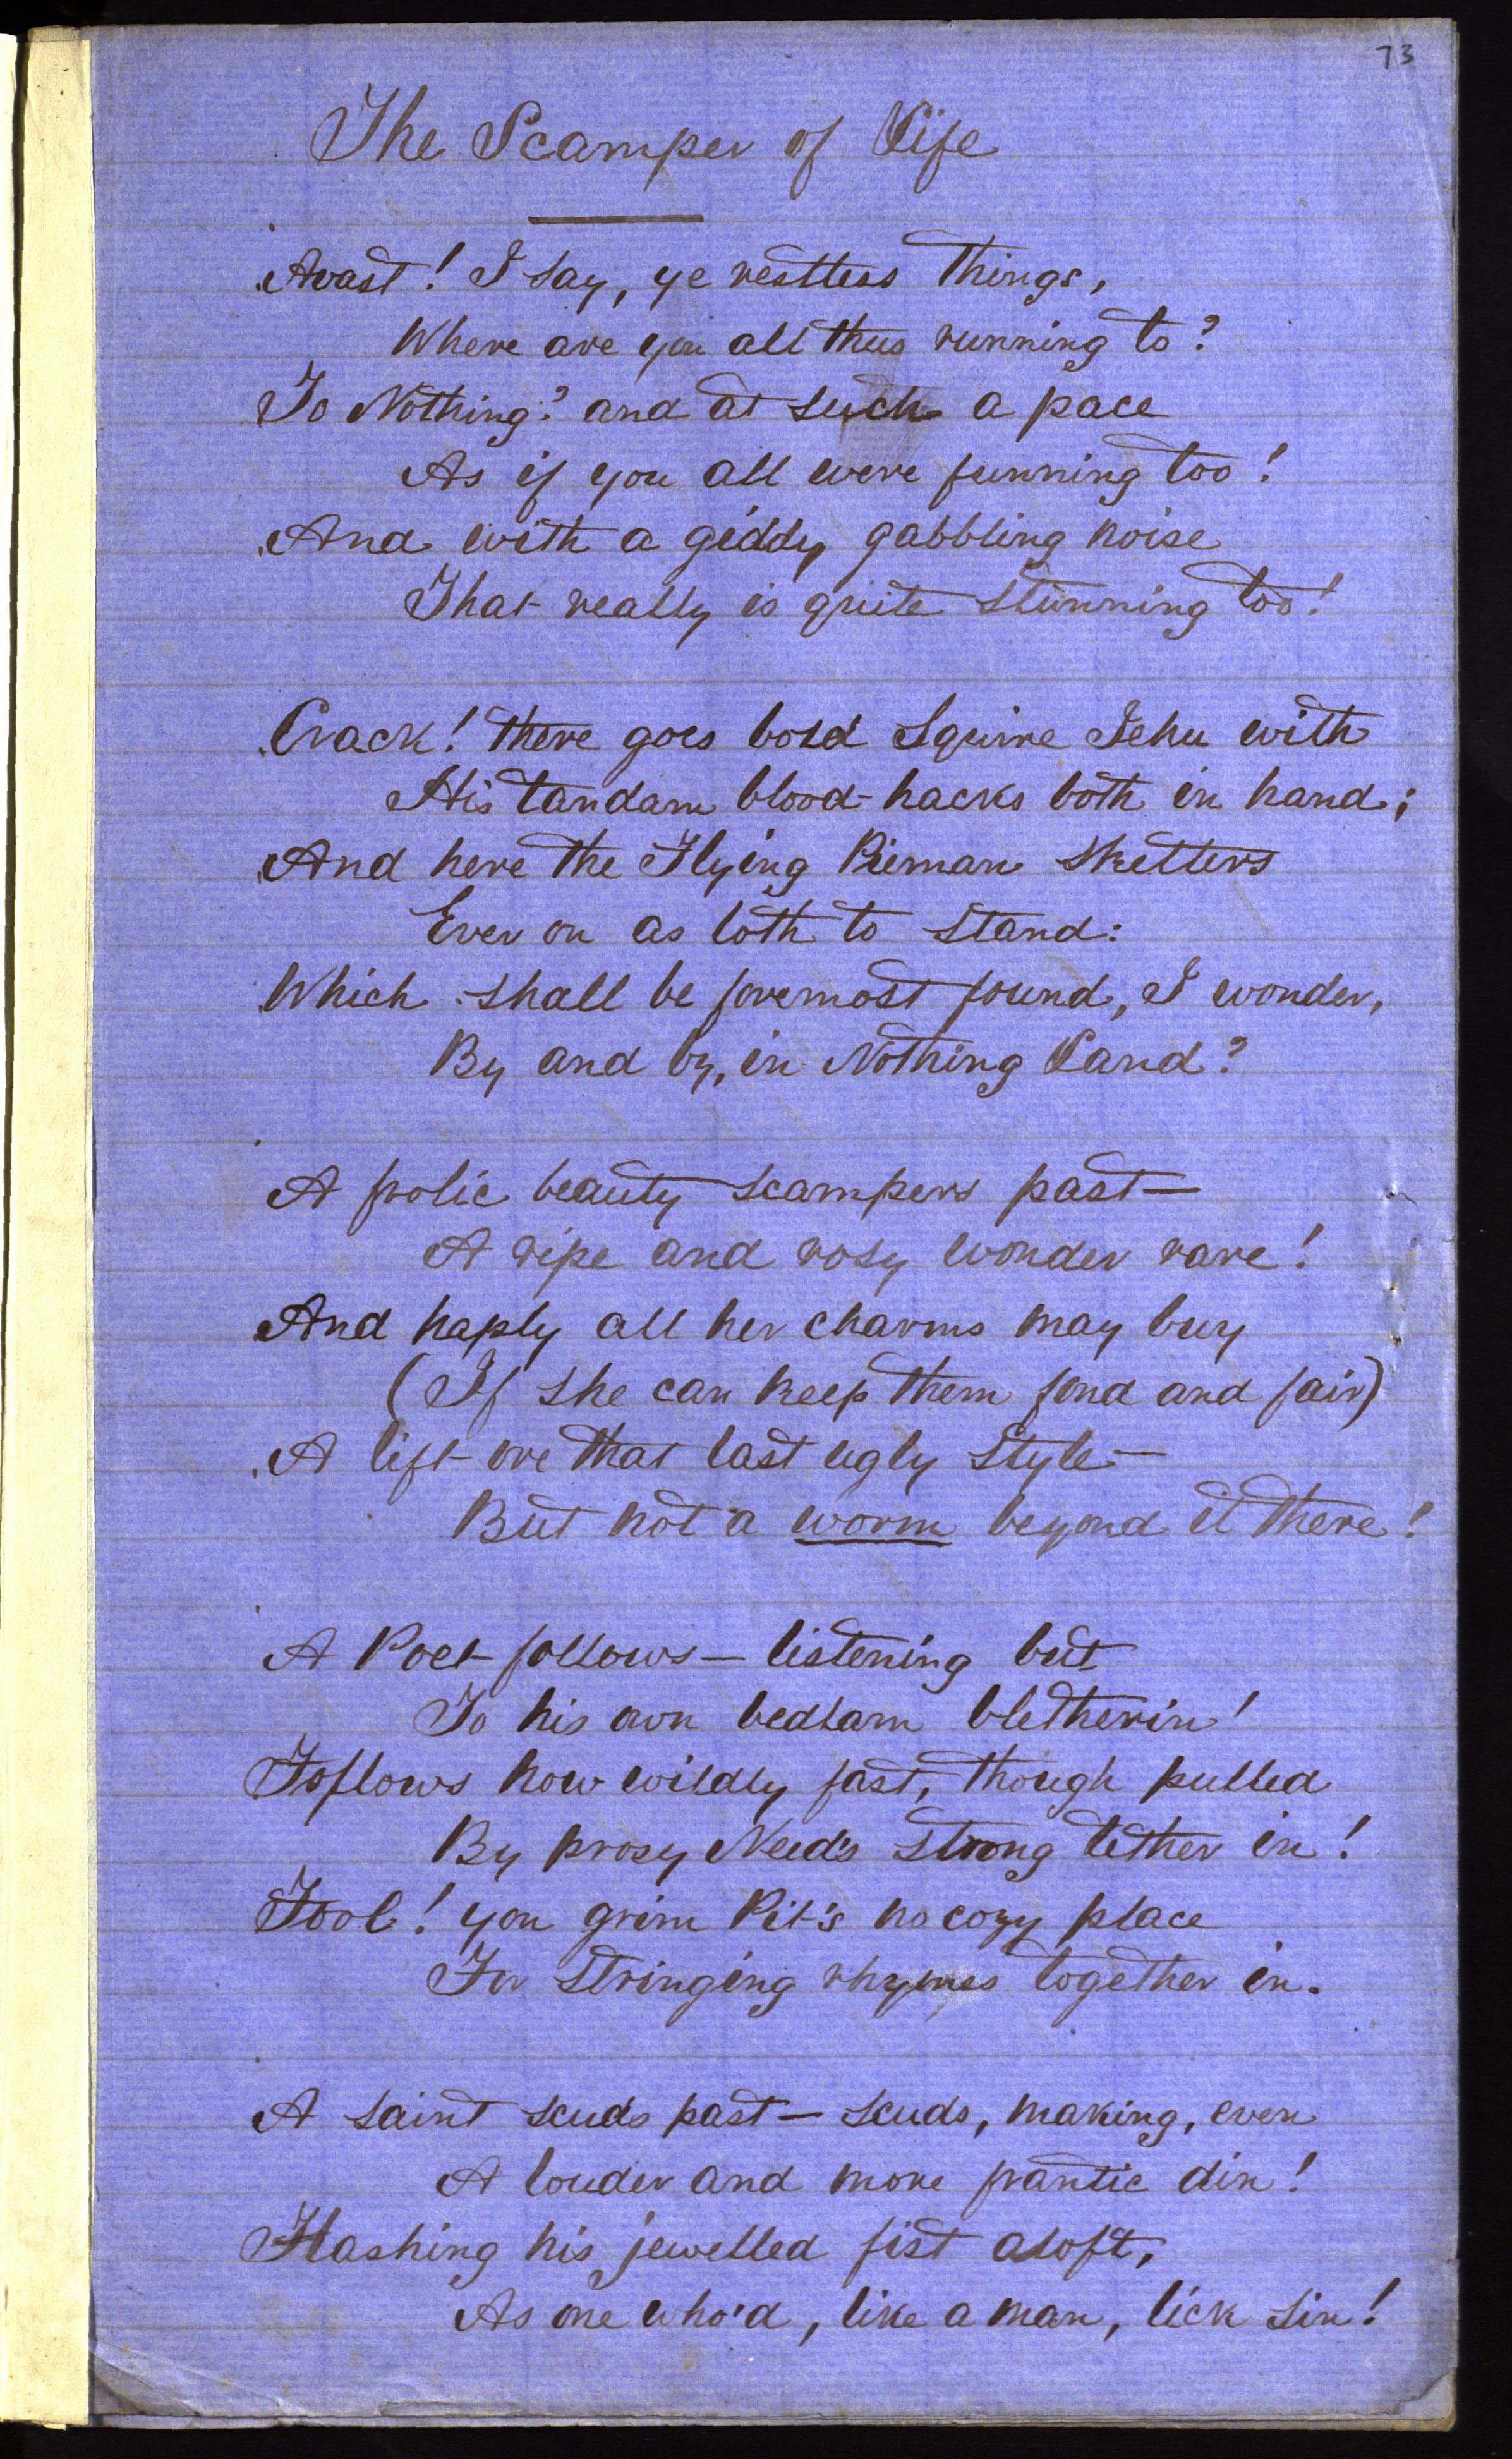 73
The Scamper of Life
Avast! I say, ye restless things,
Where are you all thus running to?
To Nothing? and at such a pace
As if you all were funning too!
And with a giddy gabbling noise
That really is quite stunning too!
Crack! there goes bold Squire Jehu with
His tandam blood-hacks both in hand;
And here the Flying Pieman sketters
Ever on as loth to stand:
Which shall be foremost found, I wonder,
By and by, in Nothing Land?
A frolic beauty scampers past—
A ripe and rosy wonder rare!
And haply all her charms may buy
(If she can keep them fond and fair)
A lift ore that last ugly style—
But not a worm beyond it there!
A Poet follows — listening but
To his own bedlam bletherin!
Follows how wildly fast, though pulled
By prosy Need's strong tether in!
Fool! yon grim Pit's no cozy place
For stringing rhymes together in.
A saint scuds past — scuds, making, even
A louder and more frantic din!
Flashing his jewelled fist aloft,
As one who'd, like a man, lick Sin!